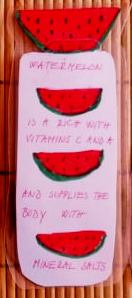 WATERMELON
IS A RICH WITH
VITAMINS C AND A
AND SUPPLIES THE
BODY WITH
MINERAL SALTS